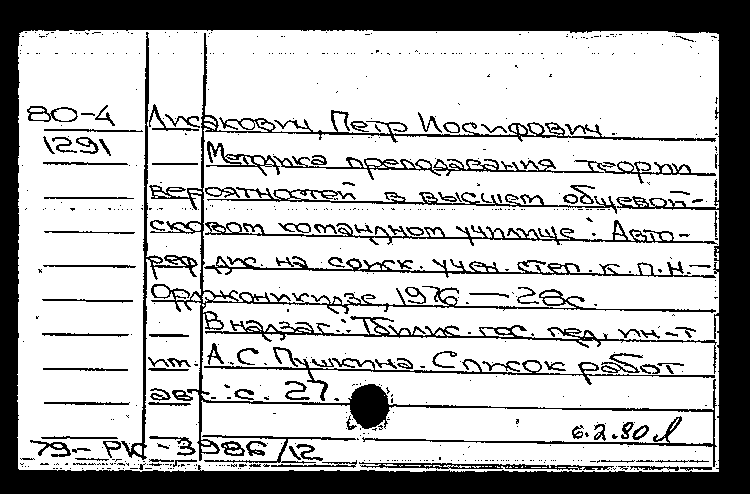 80-4 Лисакович, Петр Иосифович.
1291 Методика преподавания теории
вероятностей в высшем общевой-
сковом командном училище : Авто-
реф. дис. на соиск. учен. степ. к. п. н. —
Орджоникидзе, 1976. — 28с.
В надзаг.: Тбилис. гос. пед. ин-т
им. А.С. Пушкина. Список работ
авт.: с. 27.
6.2.80
79- РК - 3986/12